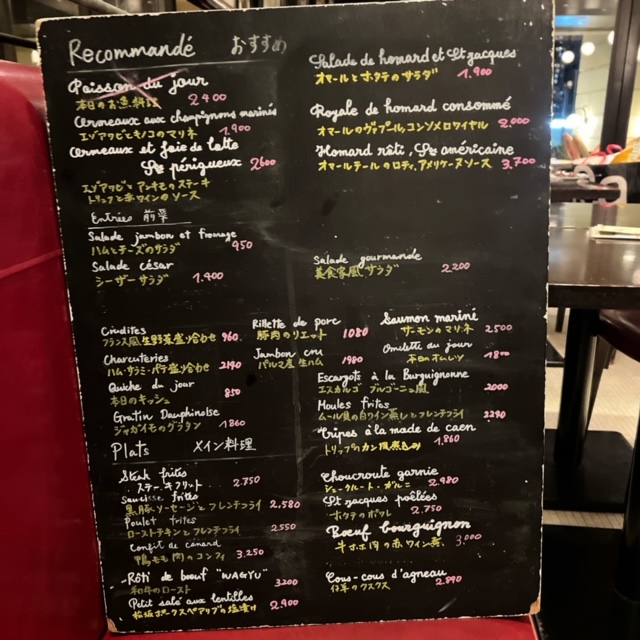 Recommandé おすすめ
Poisson du jour
本日のお魚料理 2400
Ormeaux aux champignons marinés
エゾアワビとキノコのマリネ 1.900
Ormeaux et foie de lotte
Sce périgueux 2600
エゾアワビとアンキモのステーキ
トリュフと赤ワインのソース
Salade de homard et St jacques
オマールとホタテのサラダ 1.900
Royale de homard consommé
オマールのヴァプール,コンソメロワイヤル 2.000
Homard rôti, Sce américaine
オマールテールのロティ,アメリケーヌソース 3.700
Entrées 前菜
Salade jambon et fromage
ハムとチーズのサラダ 950
Salade césar
シーザーサラダ 1.400
Salade gourmande
美食家風サラダ 2200
Crudites
フランス風生野菜盛り合わせ 960
Charcuteries
ハム・サラミ・パテ盛り合わせ 2140
Quiche du jour
本日のキッシュ 850
Gratin Dauphinoise
ジャガイモのグラタン 1860
Rillette de porc
豚肉のリエット 1080
Jambon cru
パルマ産 生ハム 1980
Saumon mariné
サーモンのマリネ 2500
Omelette du jour
本日のオムレツ 1800
Escargots à la Burguignonne
エスカルゴ ブルゴーニュ風 2000
Moules frites
ムール貝の白ワイン蒸しとフレンチフライ 2240
Tripes à la mode de caen
トリップのカン風煮込み 1.860
Plats メイン料理
Steak frites
ステーキフリット 2.750
Saucisse frites
黒豚ソーセージとフレンチフライ 2.580
Poulet frites
ローストチキンとフレンチフライ 2550
Confit de canard
鴨もも肉のコンフィ 3.250
Rôti de bœuf "WAGYU"
和牛のロースト 3200
Petit salé aux lentilles
ポークスペアリブの塩漬け 2.900
Choucroute garnie
シュークルート・ガルニ 2.980
St jacques poêlées
ホタテのポワレ 2.750
Bœuf bourguignon
牛ホホ肉の赤ワイン煮 3.000
Cous-cous d'agneau
仔羊のクスクス 2.890